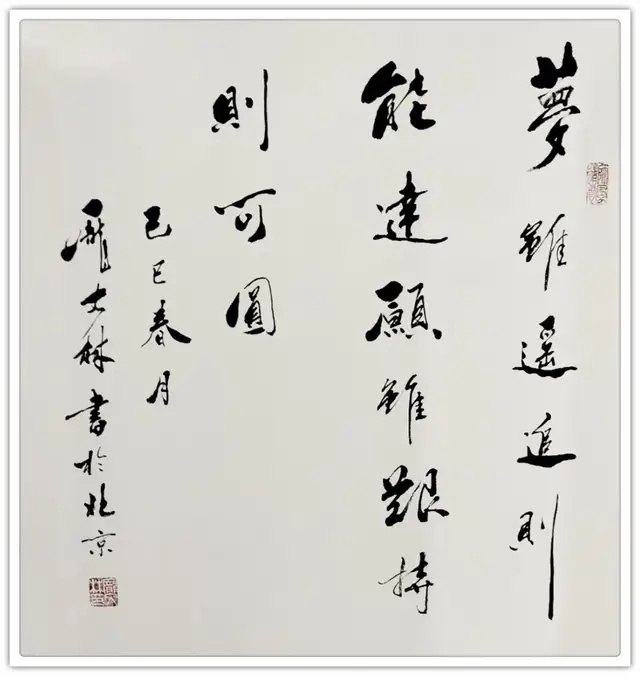 夢雖遥追則
能達願雖艱持
則可圓
己巳春月
龐士林書於北京